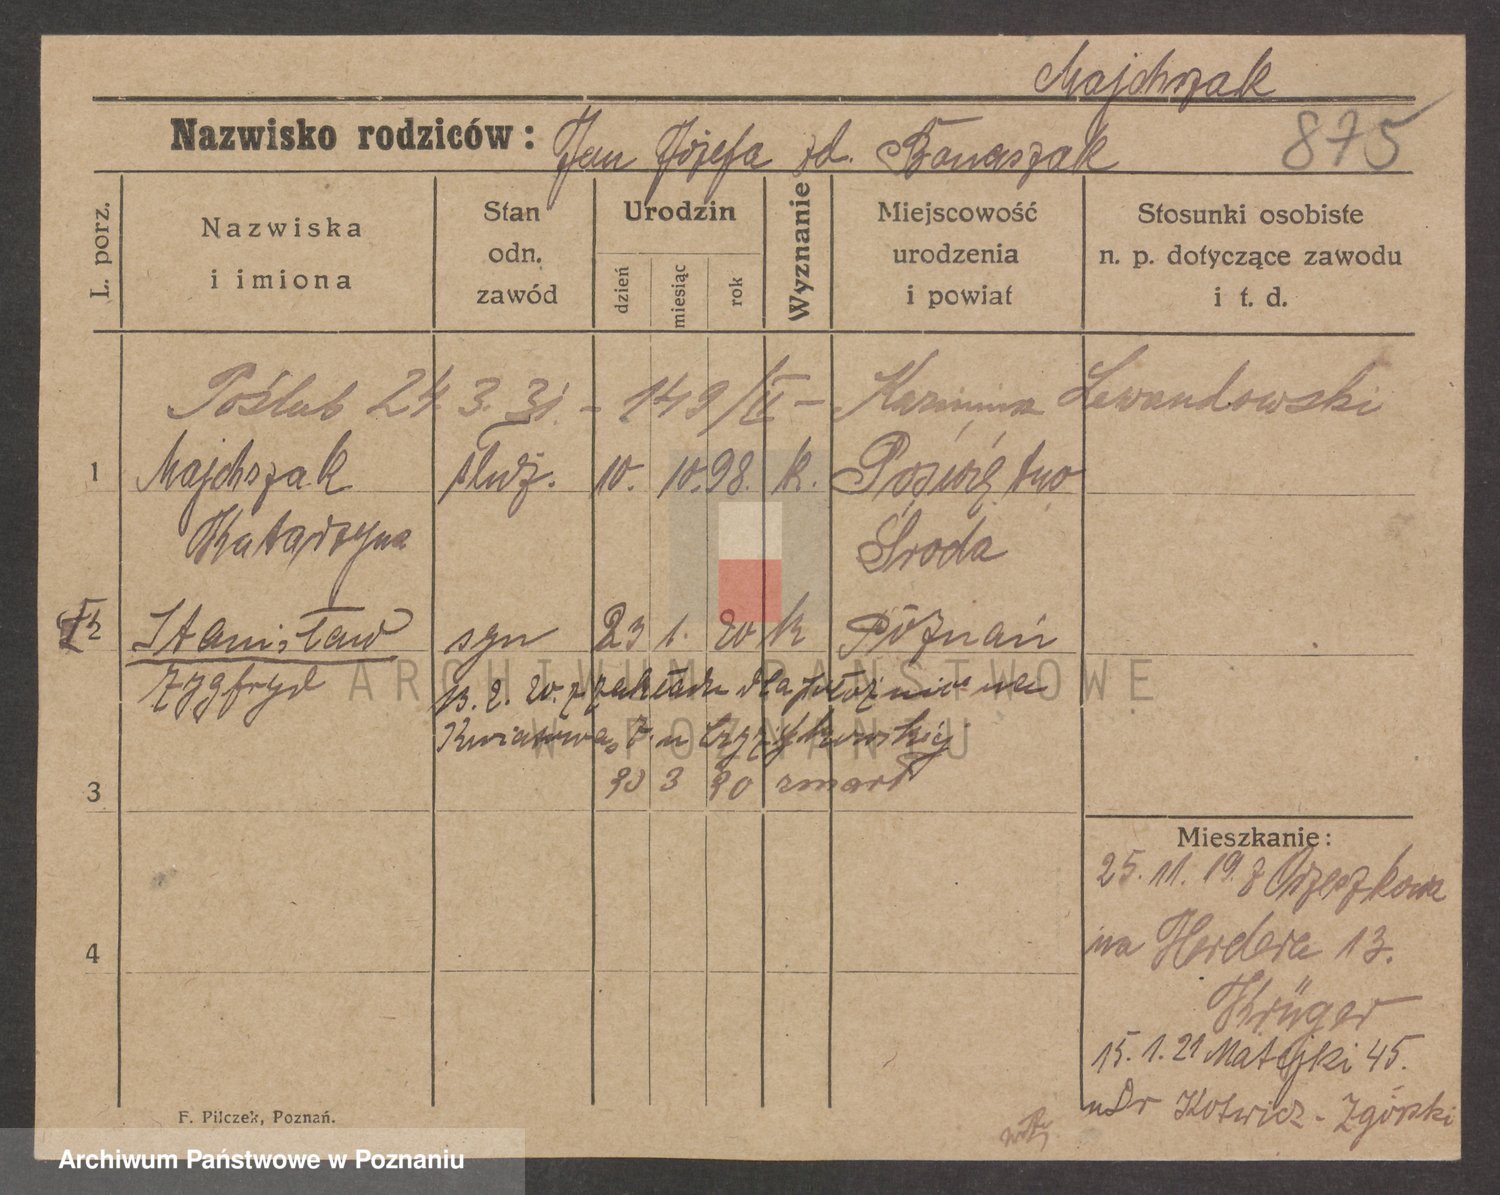 Majchrzak
Nazwisko rodziców: Jan Józefa zd. Banaszak
875
L. porz.
Nazwiska
i imiona
Stan
odn.
zawód
Urodzin
dzień
miesiąc
rok
Wyznanie
Miejscowość
urodzenia
i powiat
Stosunki osobiste
n. p. dotyczące zawodu
i t. d.
Poślub 24. 3. 31. - 149/II - Kazimierz Lewandowski
1 Majchrzak służ. 10. 10. 98. k. Pośwíętno
Katarzyna Środa
2 Stanisław syn 23 1. 20 k Poznań
Zygfryd 13. 2. 20. z zakładu dla położnic na
Kwiatową u
30 3 20 zmarł
3
4
Mieszkanie:
25. 11. 19 z Orzeszkowa
na Herdera 13.
Krüger
15. 1. 21 Matejki 45.
u Dr Kotwicz-Zgórski
F. Pilczek, Poznań.
ARCHIWUM PAŃSTWOWE
W POZNANIU
Archiwum Państwowe w Poznaniu